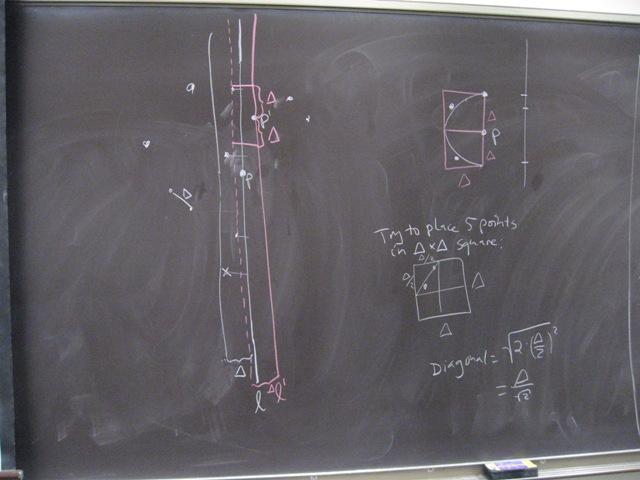 Δ
P'
Δ
P
Δ
x
Δ
l
Δ
l'
Δ
P
Δ
Δ
Try to place 5 points
in Δ x Δ square:
Δ/2
Δ/2
Δ
Δ
Diagonal = √2·(Δ/2)²
= Δ/√2